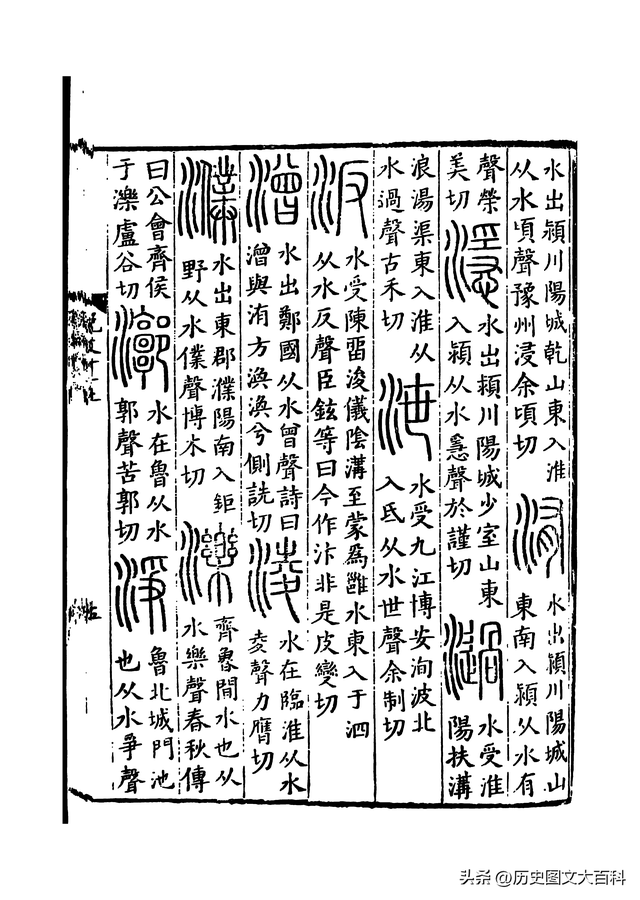 水出潁川陽城乾山東入淮
从水頃聲豫州浸余頃切
洧
水出潁川陽城山
東南入潁从水有
聲榮
美切
濦
水出潁川陽城少室山東
入潁从水㥯聲於謹切
濄
水受淮
陽扶溝
浪湯渠東入淮从
水過聲古禾切
泄
水受九江博安洵波北
入氐从水世聲余制切
汳
水受陳畱浚儀陰溝至蒙爲雝水東入于泗
从水反聲臣鉉等曰今作汴非是皮變切
潧
水出鄭國从水曾聲詩曰
潧與洧方渙渙兮側詵切
淩
水在臨淮从水
夌聲力膺切
濮
水出東郡濮陽南入鉅
野从水僕聲博木切
濼
齊魯閒水也从
水樂聲春秋傳
曰公會齊侯
于濼盧谷切
漷
水在魯从水
郭聲苦郭切
淨
魯北城門池
也从水爭聲
头条 @历史图文大百科